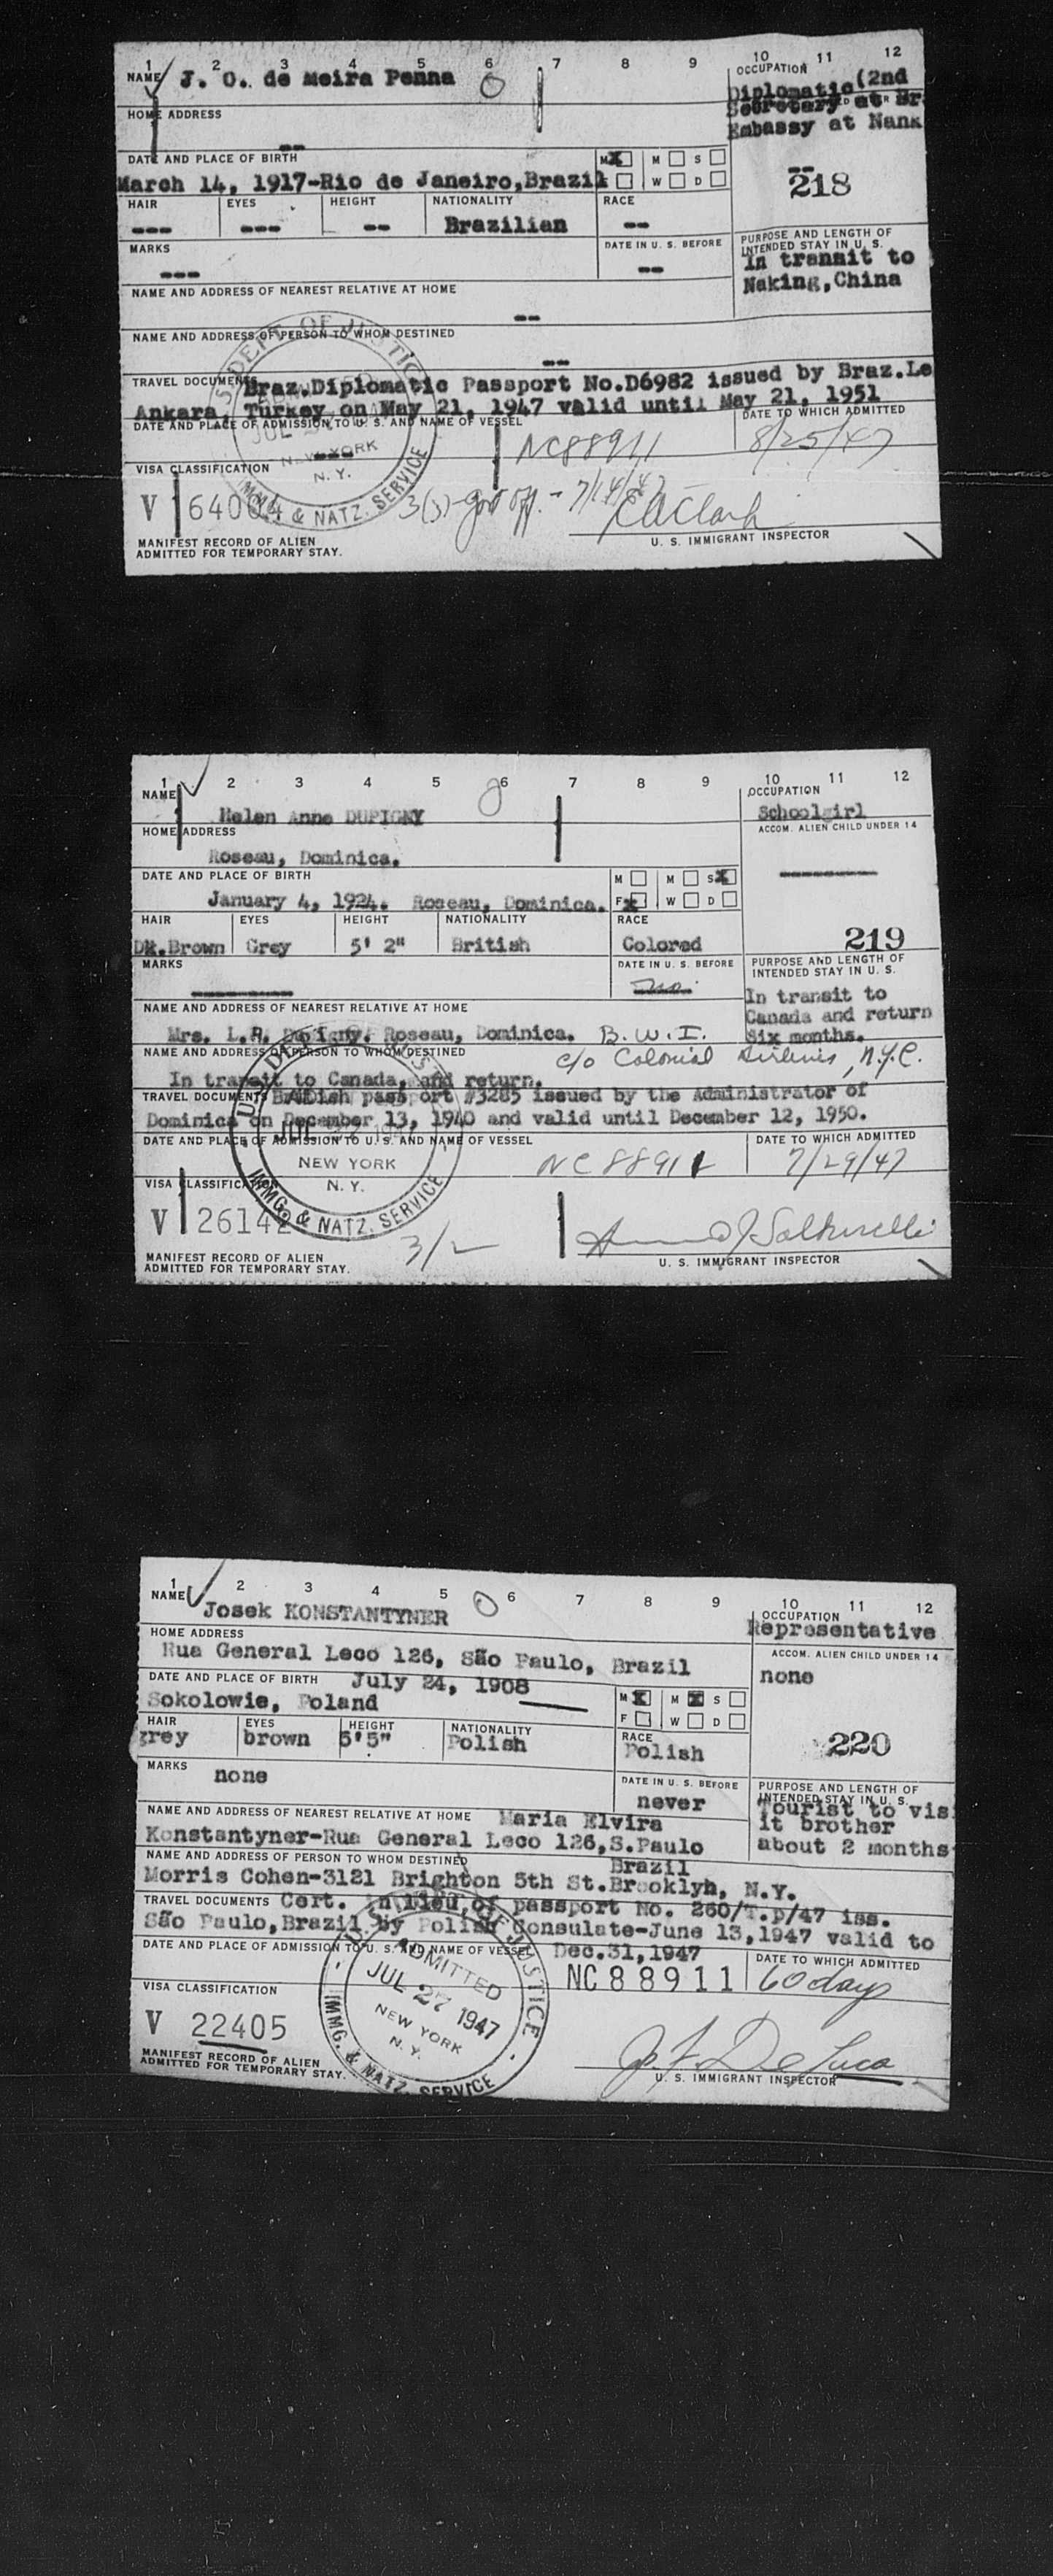 1 2 3 4 5 6 7 8 9 10 11 12
NAME J. O. de Meira Penna
OCCUPATION
Diplomatic (2nd
Secretary at Br.
Embassy at Nank
HOME ADDRESS
--
DATE AND PLACE OF BIRTH
March 14, 1917-Rio de Janeiro,Brazil
M X M S
W D
218
HAIR EYES HEIGHT NATIONALITY RACE
--- --- -- Brazilian --
MARKS
---
DATE IN U. S. BEFORE
--
PURPOSE AND LENGTH OF
INTENDED STAY IN U. S.
In transit to
Naking,China
NAME AND ADDRESS OF NEAREST RELATIVE AT HOME
--
NAME AND ADDRESS OF PERSON TO WHOM DESTINED
--
TRAVEL DOCUMENTS Braz.Diplomatic Passport No.D6982 issued by Braz.Le
Ankara, Turkey on May 21, 1947 valid until May 21, 1951
DATE AND PLACE OF ADMISSION TO U. S. AND NAME OF VESSEL
NC88911
DATE TO WHICH ADMITTED
8/25/47
VISA CLASSIFICATION
V 64004
3(3)-gov off. - 7/14/47
E A Clark
U. S. IMMIGRANT INSPECTOR
MANIFEST RECORD OF ALIEN
ADMITTED FOR TEMPORARY STAY.
DEPT. OF JUSTICE
JUL
NEW YORK
N. Y.
IMMG. & NATZ. SERVICE
1 2 3 4 5 6 7 8 9 10 11 12
NAME
Helen Anne DUPIGNY
OCCUPATION
Schoolgirl
HOME ADDRESS
Roseau, Dominica.
ACCOM. ALIEN CHILD UNDER 14
DATE AND PLACE OF BIRTH
January 4, 1924. Roseau, Dominica.
M M S X
F X W D
HAIR EYES HEIGHT NATIONALITY RACE
Dk.Brown Grey 5' 2" British Colored
219
MARKS
DATE IN U. S. BEFORE
no.
PURPOSE AND LENGTH OF
INTENDED STAY IN U. S.
In transit to
Canada and return
Six months.
NAME AND ADDRESS OF NEAREST RELATIVE AT HOME
Mrs. L.R. Dupigny. Roseau, Dominica. B.W.I.
NAME AND ADDRESS OF PERSON TO WHOM DESTINED
c/o Colonial Airlines, N.Y.C.
In transit to Canada, and return.
TRAVEL DOCUMENTS British passport #3285 issued by the Administrator of
Dominica on December 13, 1940 and valid until December 12, 1950.
DATE AND PLACE OF ADMISSION TO U. S. AND NAME OF VESSEL
NC88911
DATE TO WHICH ADMITTED
7/29/47
JUL
NEW YORK
N. Y.
IMMG. & NATZ. SERVICE
VISA CLASSIFICATION
V 26142
3/2
U. S. IMMIGRANT INSPECTOR
MANIFEST RECORD OF ALIEN
ADMITTED FOR TEMPORARY STAY.
1 2 3 4 5 6 7 8 9 10 11 12
NAME Josek KONSTANTYNER
OCCUPATION
Representative
HOME ADDRESS
Rua General Leco 126, São Paulo, Brazil
ACCOM. ALIEN CHILD UNDER 14
none
DATE AND PLACE OF BIRTH July 24, 1908
Sokolowie, Poland
M X M X S
F W D
HAIR EYES HEIGHT NATIONALITY RACE
grey brown 5'5" Polish Polish
220
MARKS none
DATE IN U. S. BEFORE
never
PURPOSE AND LENGTH OF
INTENDED STAY IN U. S.
Tourist to vis
it brother
about 2 months
NAME AND ADDRESS OF NEAREST RELATIVE AT HOME Maria Elvira
Konstantyner-Rua General Leco 126,S.Paulo
Brazil
NAME AND ADDRESS OF PERSON TO WHOM DESTINED
Morris Cohen-3121 Brighton 5th St.Brooklyh, N.Y.
TRAVEL DOCUMENTS Cert. in lieu of passport No. 260/T.p/47 iss.
São Paulo,Brazil by Polish Consulate-June 13,1947 valid to
Dec.31,1947
DATE AND PLACE OF ADMISSION TO U. S. AND NAME OF VESSEL
NC88911
DATE TO WHICH ADMITTED
60 days
ADMITTED
JUL 27 1947
NEW YORK
N. Y.
IMMG. & NATZ. SERVICE
VISA CLASSIFICATION
V 22405
J. F. DeLuca
U. S. IMMIGRANT INSPECTOR
MANIFEST RECORD OF ALIEN
ADMITTED FOR TEMPORARY STAY.